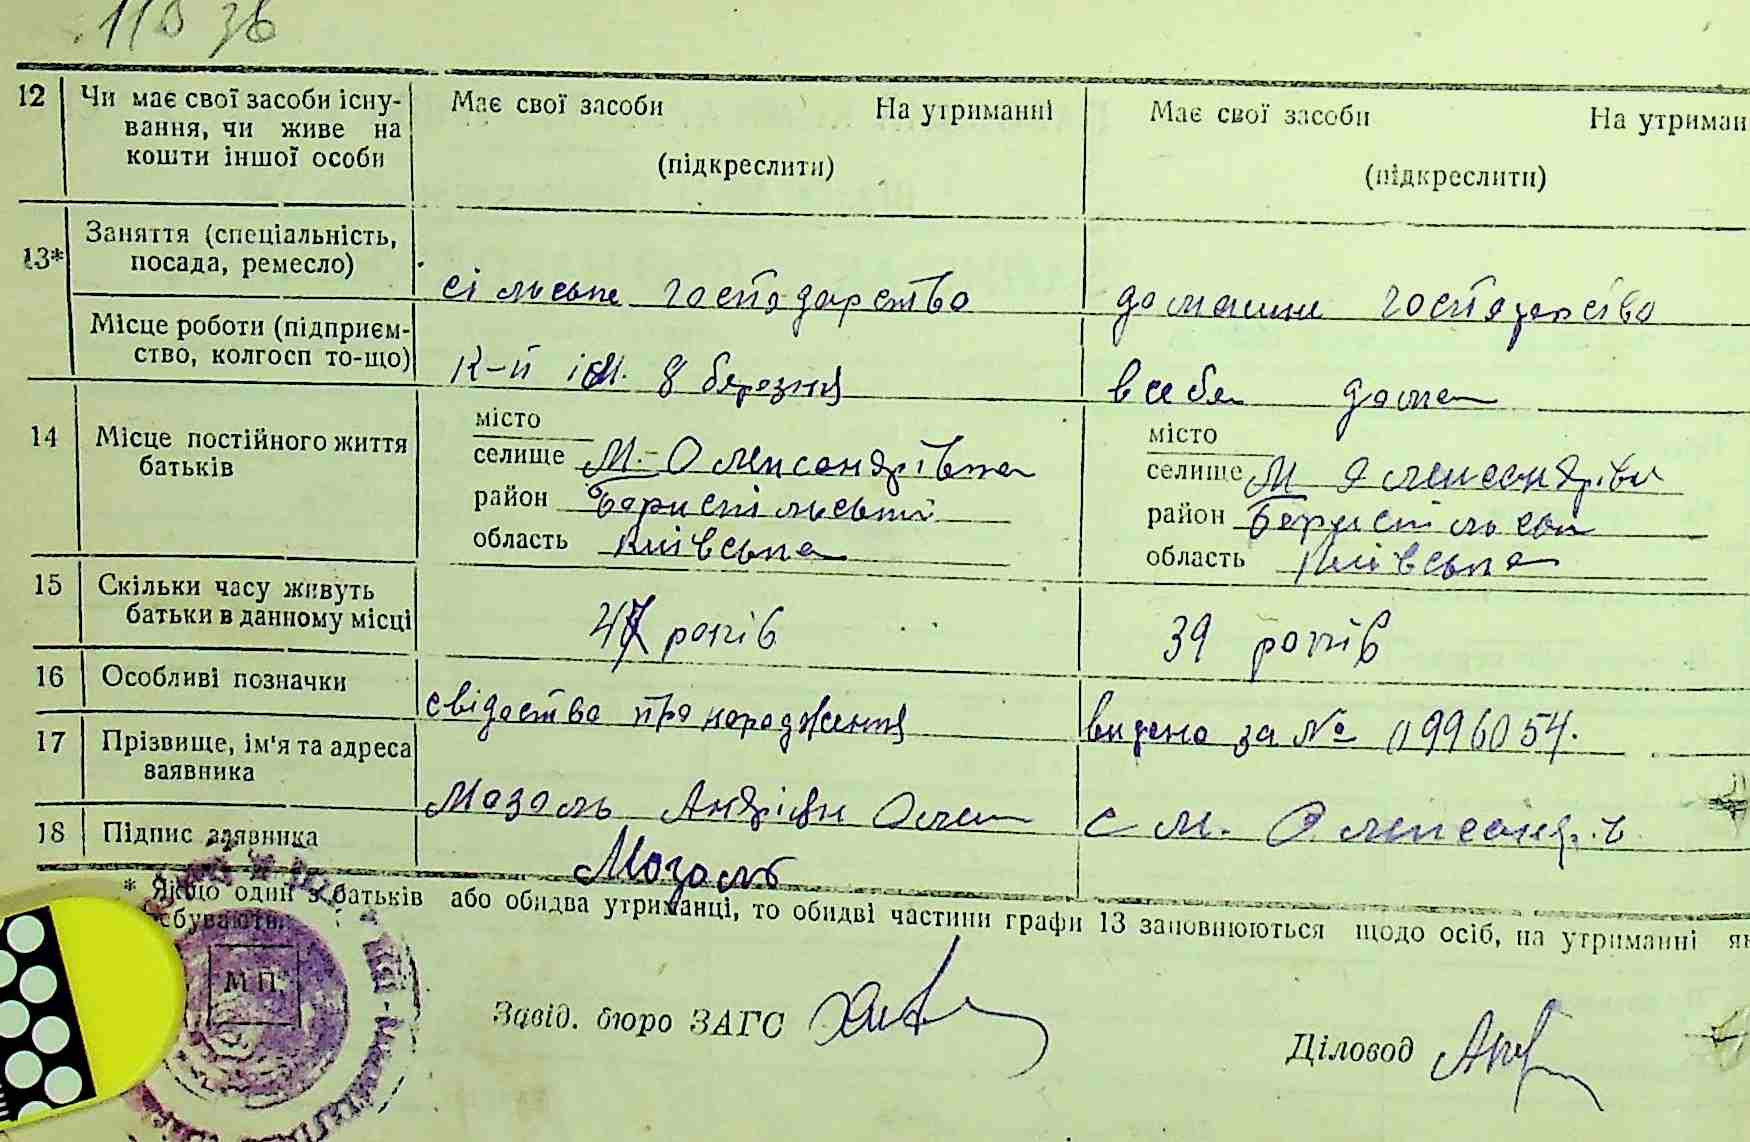 12 Чи має свої засоби існу- Має свої засоби На утриманні Має свої засоби На утриман
вання, чи живе на
кошти іншої особи (підкреслити) (підкреслити)
13* Заняття (спеціальність,
посада, ремесло) сільське господарство домашнє господарство
Місце роботи (підприєм-
ство, колгосп то-що) к-п ім. 8 березня в себе дома
14 Місце постійного життя
батьків
місто місто
селище М-Олександрівка селище М Олександрівк
район Бориспільський район Бориспільськ
область Київська область Київська
15 Скільки часу живуть
батьки в данному місці років 39 років
16 Особливі позначки свідоство про народження видано за № 0996054.
17 Прізвище, ім'я та адреса
заявника Мозоль Андріян Олек с М. Олександрів
18 Підпис заявника Мозоль
* Якщо один з батьків або обидва утриманці, то обидві частини графи 13 заповнюються щодо осіб, на утриманні як
ребувають.
М П.
Завід. бюро ЗАГС
Діловод